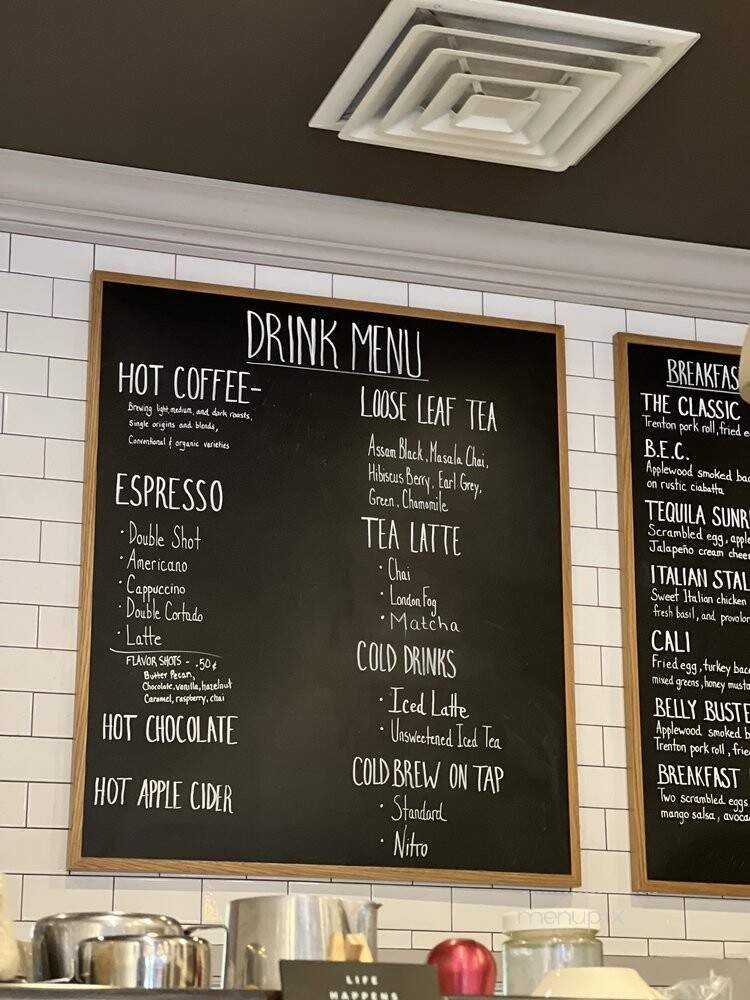 DRINK MENU
HOT COFFEE-
Brewing light, medium, and dark roasts,
Single origins and blends,
Conventional & organic varieties
ESPRESSO
· Double Shot
· Americano
· Cappuccino
· Double Cortado
· Latte
FLAVOR SHOTS - .50¢
Butter Pecan,
Chocolate, vanilla, hazelnut
Caramel, raspberry, chai
HOT CHOCOLATE
HOT APPLE CIDER
LOOSE LEAF TEA
Assam Black, Masala Chai,
Hibiscus Berry, Earl Grey,
Green, Chamomile
TEA LATTE
· Chai
· London Fog
· Matcha
COLD DRINKS
· Iced Latte
· Unsweetened Iced Tea
COLD BREW ON TAP
· Standard
· Nitro
BREAKFAS
THE CLASSIC
Trenton pork roll, fried e
B.E.C.
Applewood smoked bac
on rustic ciabatta
TEQUILA SUNR
Scrambled egg, apple
Jalapeño cream chee
ITALIAN STAL
Sweet Italian chicken
fresh basil, and provolon
CALI
Fried egg, turkey bac
mixed greens, honey musta
BELLY BUSTE
Applewood smoked b
Trenton pork roll, frie
BREAKFAST
Two scrambled eggs
mango salsa, avoca
menupix
LIFE
HAPPENS